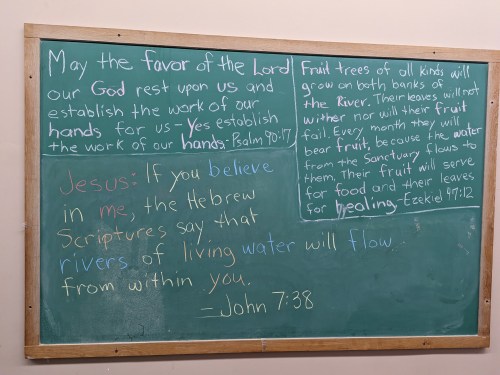 May the favor of the Lord
our God rest upon us and
establish the work of our
hands for us - Yes establish
the work of our hands. - Psalm 90:17
Fruit trees of all kinds will
grow on both banks of
the River. Their leaves will not
wither nor will their fruit
fail. Every month they will
bear fruit, because the water
from the Sanctuary flows to
them. Their fruit will serve
for food and their leaves
for healing - Ezekiel 47:12
Jesus: If you believe
in me, the Hebrew
Scriptures say that
rivers of living water will flow
from within you.
- John 7:38